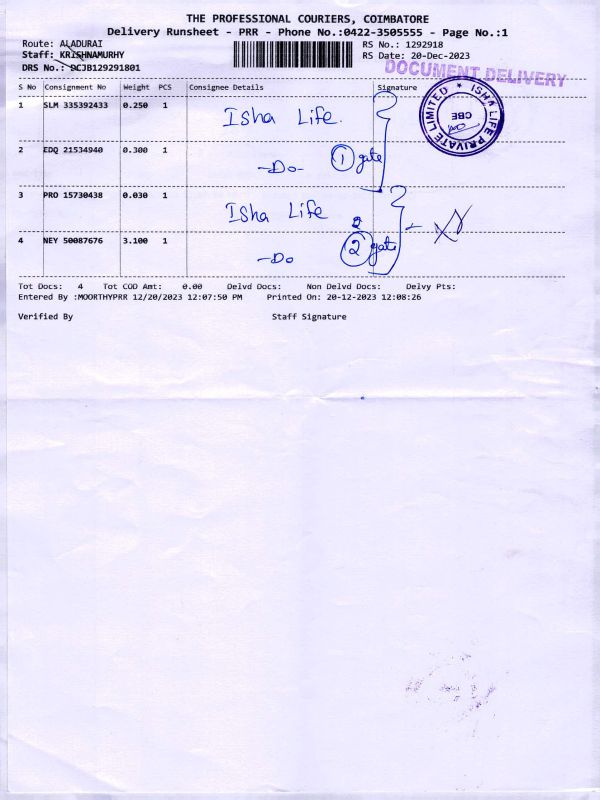 THE PROFESSIONAL COURIERS, COIMBATORE
Delivery Runsheet - PRR - Phone No.:0422-3505555 - Page No.:1
Route: ALADURAI
RS No.: 1292918
Staff: KRISHNAMURHY
RS Date: 20-Dec-2023
DRS No.: DCJB129291801
DOCUMENT DELIVERY
S No Consignment No Weight PCS Consignee Details Signature
1 SLM 335392433 0.250 1 Isha Life.
ISHA LIFE PRIVATE LIMITED ★
CBE
2 EDQ 21534940 0.300 1 -Do- 1 gate
3 PRQ 15730438 0.030 1 Isha Life
2
4 NEY 50087676 3.100 1 -Do 2 gate
Tot Docs: 4 Tot COD Amt: 0.00 Delvd Docs: Non Delvd Docs: Delvy Pts:
Entered By :MOORTHYPRR 12/20/2023 12:07:50 PM Printed On: 20-12-2023 12:08:26
Verified By Staff Signature